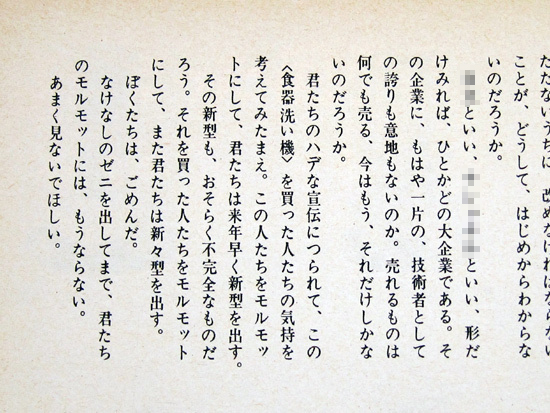 ただないうちに、改めなければならない
ことが、どうして、はじめからわからな
いのだろうか。
といい、といい、形だ
けみれば、ひとかどの大企業である。そ
の企業に、もはや一片の、技術者として
の誇りも意地もないのか。売れるものは
何でも売る、今はもう、それだけしかな
いのだろうか。
君たちのハデな宣伝につられて、この
〈食器洗い機〉を買った人たちの気持を
考えてみたまえ。この人たちをモルモッ
トにして、君たちは来年早く新型を出す。
その新型も、おそらく不完全なものだ
ろう。それを買った人たちをモルモット
にして、また君たちは新々型を出す。
ぼくたちは、ごめんだ。
なけなしのゼニを出してまで、君たち
のモルモットには、もうならない。
あまく見ないでほしい。